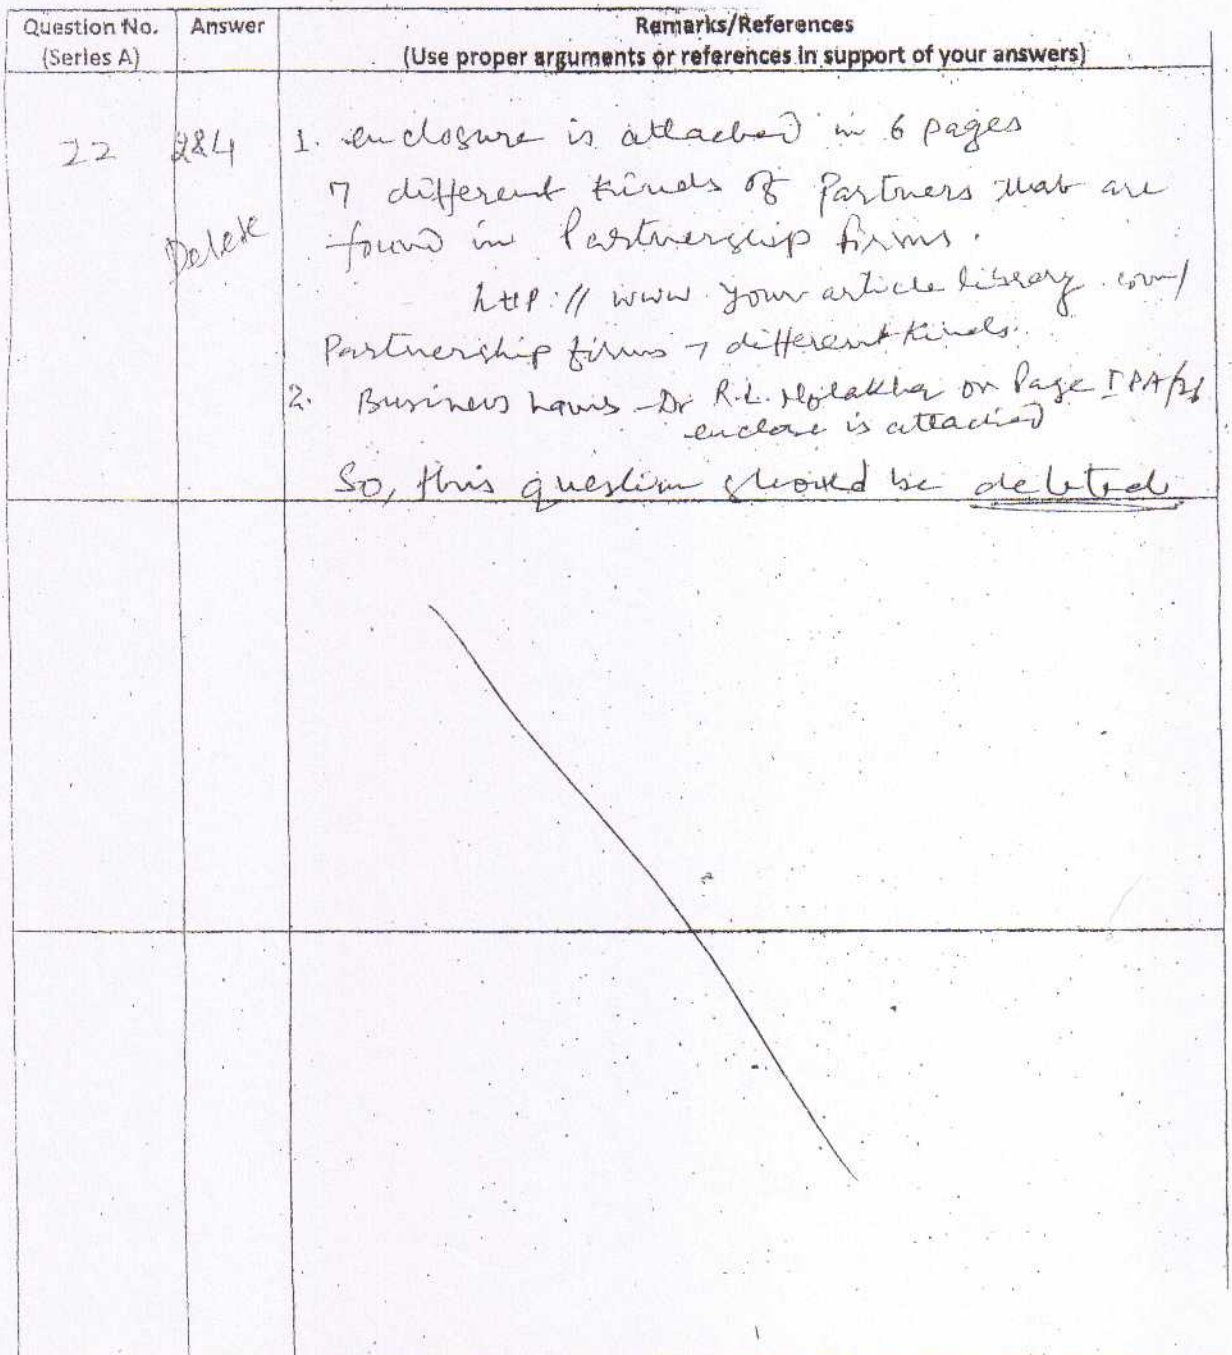 Question No. Answer Remarks/References
(Series A) (Use proper arguments or references in support of your answers)
22 2&4 1. enclosure is attached in 6 pages
7 different kinds of Partners that are
Delete found in Partnership firms.
http://www.yourarticlelibrary.com/
Partnership firms 7 different kinds.
2. Business Laws - Dr R.L. on Page
enclose is attached
So, this question should be deleted